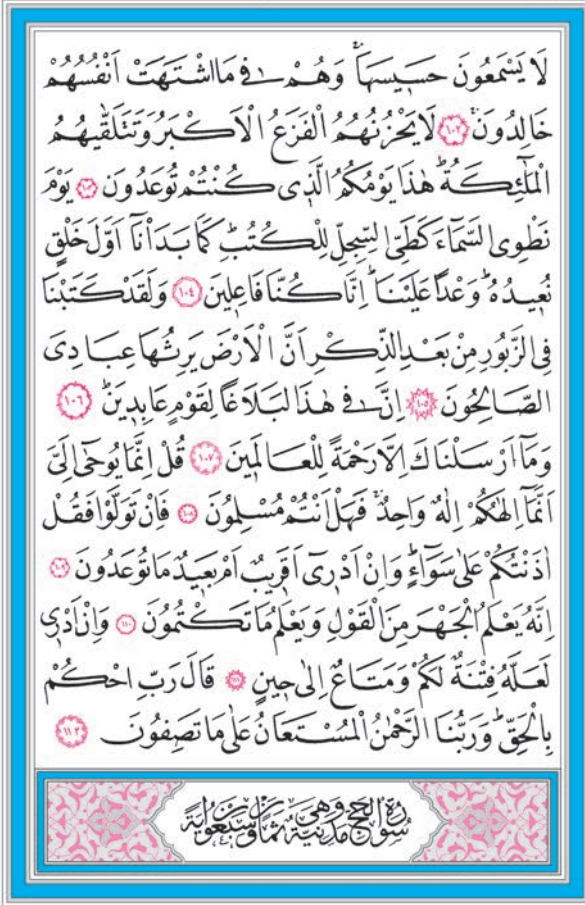 لَا يَسْمَعُونَ حَسِيسَهَاۚ وَهُمْ فِي مَا اشْتَهَتْ اَنْفُسُهُمْ
خَالِدُونَۚ ﴿١٠٢﴾ لَا يَحْزُنُهُمُ الْفَزَعُ الْاَكْبَرُ وَتَتَلَقّٰيهُمُ
الْمَلٰٓئِكَةُۜ هٰذَا يَوْمُكُمُ الَّذِي كُنْتُمْ تُوعَدُونَ ﴿١٠٣﴾ يَوْمَ
نَطْوِي السَّمَٓاءَ كَطَيِّ السِّجِلِّ لِلْكُتُبِۜ كَمَا بَدَأْنَٓا اَوَّلَ خَلْقٍ
نُعِيدُهُۜ وَعْدًا عَلَيْنَاۜ اِنَّا كُنَّا فَاعِلِينَ ﴿١٠٤﴾ وَلَقَدْ كَتَبْنَا
فِي الزَّبُورِ مِنْ بَعْدِ الذِّكْرِ اَنَّ الْاَرْضَ يَرِثُهَا عِبَادِيَ
الصَّالِحُونَ ﴿١٠٥﴾ اِنَّ فِي هٰذَا لَبَلَاغًا لِقَوْمٍ عَابِدِينَۜ ﴿١٠٦﴾
وَمَٓا اَرْسَلْنَاكَ اِلَّا رَحْمَةً لِلْعَالَمِينَ ﴿١٠٧﴾ قُلْ اِنَّمَا يُوحٰٓى اِلَيَّ
اَنَّمَٓا اِلٰهُكُمْ اِلٰهٌ وَاحِدٌۚ فَهَلْ اَنْتُمْ مُسْلِمُونَ ﴿١٠٨﴾ فَاِنْ تَوَلَّوْا فَقُلْ
اٰذَنْتُكُمْ عَلٰى سَوَٓاءٍۜ وَاِنْ اَدْرِٓي اَقَرِيبٌ اَمْ بَعِيدٌ مَا تُوعَدُونَ ﴿١٠٩﴾
اِنَّهُ يَعْلَمُ الْجَهْرَ مِنَ الْقَوْلِ وَيَعْلَمُ مَا تَكْتُمُونَ ﴿١١٠﴾ وَاِنْ اَدْرِي
لَعَلَّهُ فِتْنَةٌ لَكُمْ وَمَتَاعٌ اِلٰى حِينٍ ﴿١١١﴾ قَالَ رَبِّ احْكُمْ
بِالْحَقِّۜ وَرَبُّنَا الرَّحْمٰنُ الْمُسْتَعَانُ عَلٰى مَا تَصِفُونَ ﴿١١٢﴾
سُورَةُ الْحَجِّ مَدَنِيَّةٌ وَهِيَ ثَمَانٍ وَسَبْعُونَ اٰيَةً